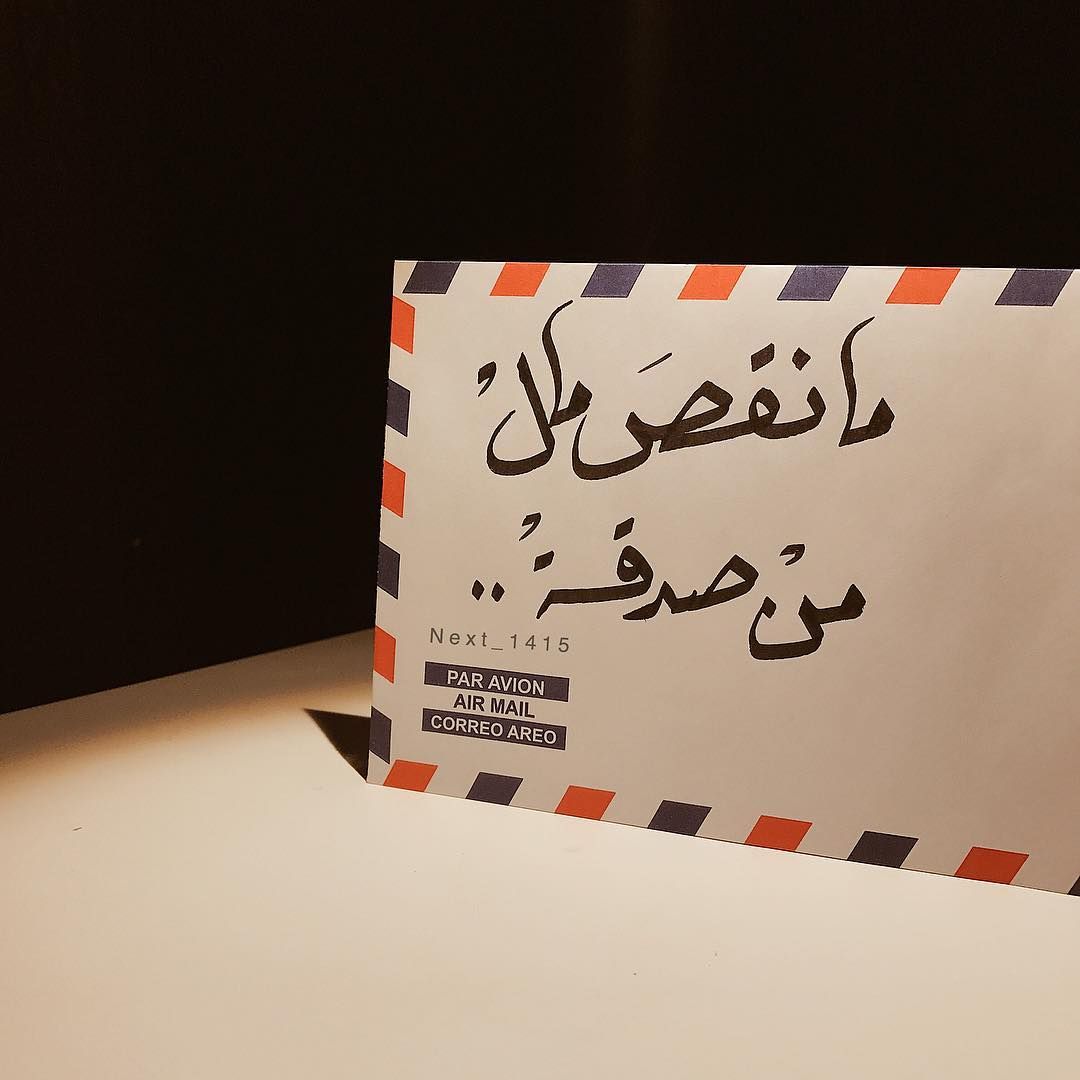 ما نقصَ مالْ
منْ صدقةْ ..
Next_1415
PAR AVION
AIR MAIL
CORREO AREO